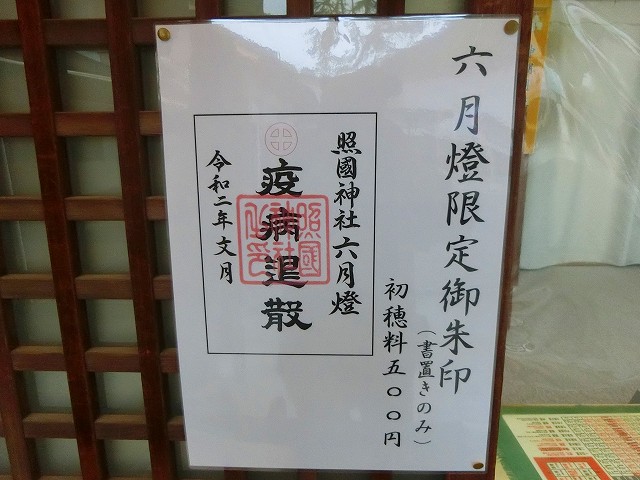 六月燈限定御朱印
（書置きのみ）
初穂料五〇〇円
照國神社六月燈
疫病退散
令和二年文月